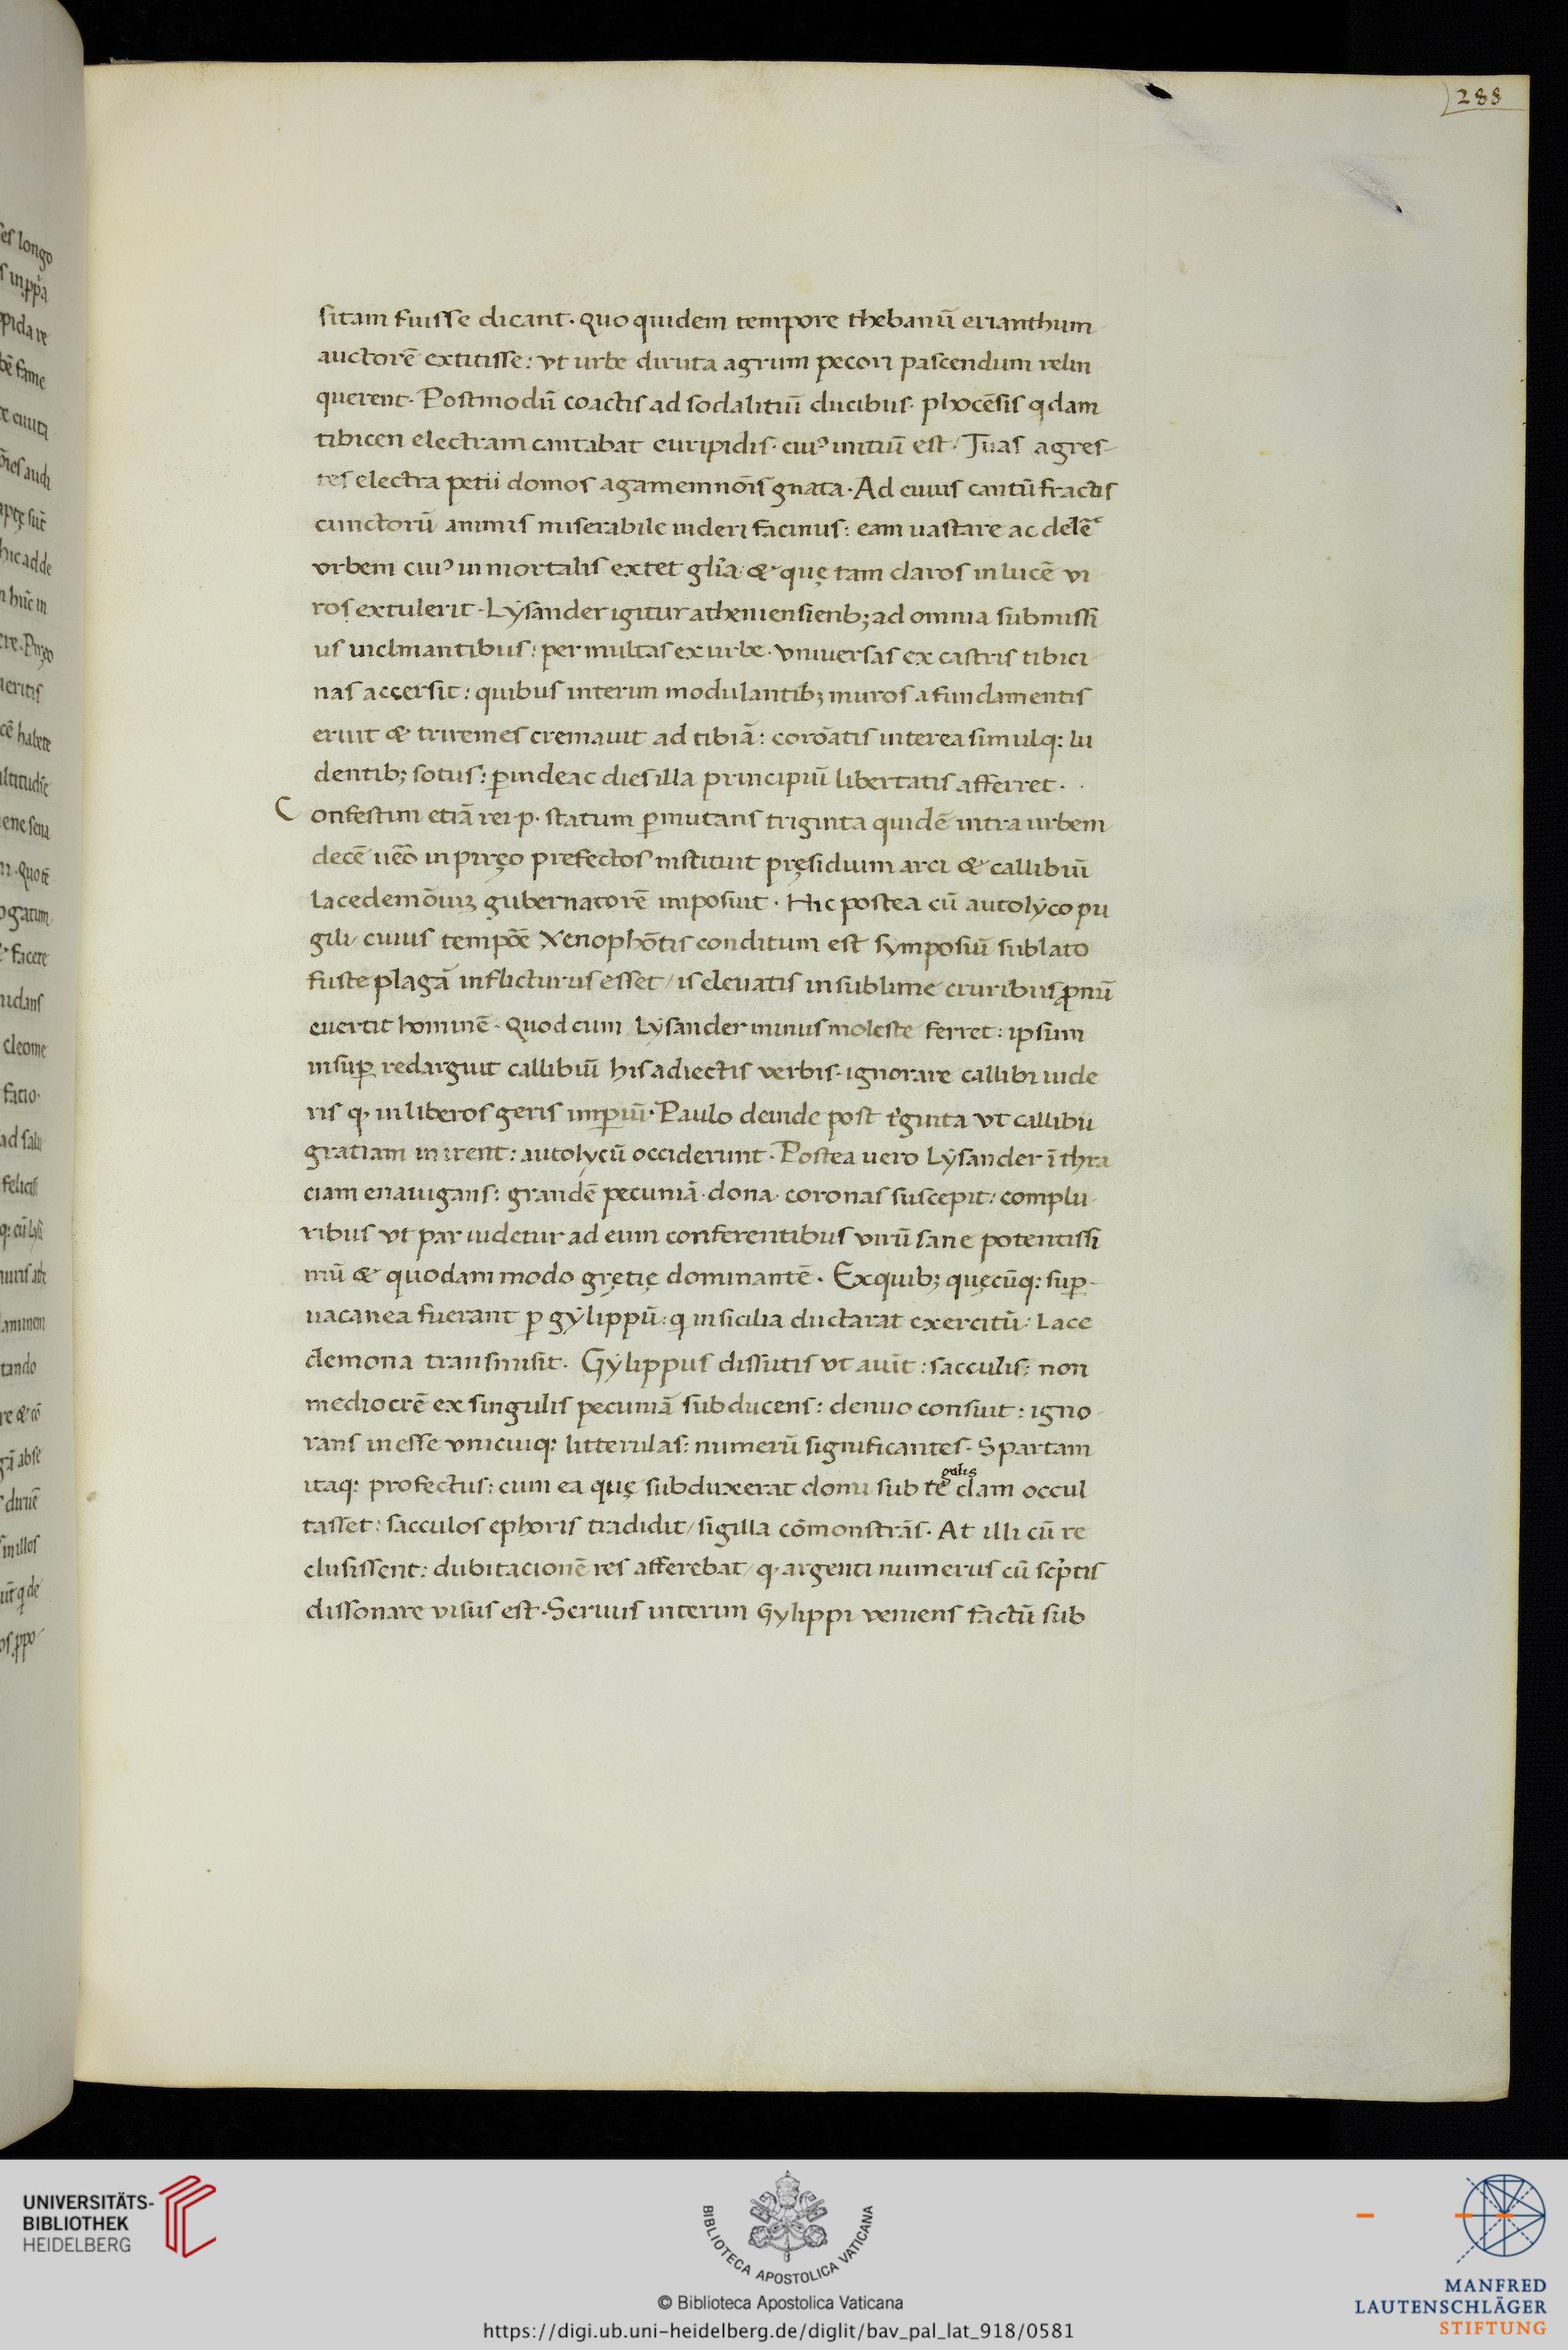 288
sitam fuisse dicant. quo quidem tempore thebanū erianthum
auctorē extitisse: vt urbe diruta agrum pecori pascendum relin
querent. Postmodū coactis ad sodalitiū ducibus. phocēsis qdam
tibicen electram cantabat euripidis. cuiꝰ initiū est / Tuas agres-
tes electra petii domos agamemnōis gnata. Ad cuius cantū fractis
cunctorū animis miserabile uideri facinus: eam uastare ac delē
vrbem cuiꝰ inmortalis extet glīa & quę tam claros in lucē vi
ros extulerit. Lẏsander igitur atheniensienbꝫ ad omnia submissi
us inclinantibus: permultas ex urbe. vniuersas ex castris tibici
nas accersit: quibus interim modulantibꝫ muros a fundamentis
eruit & triremes cremauit ad tibiā: corōatis interea simulqꝫ lu
dentibꝫ sotus: ꝑinde ac dies illa principiū libertatis afferret.
Confestim etiā rei.p. statum ꝑmutans triginta quidē intra urbem
decē uēo in piręo prefectos instituit pręsidium arci & callibiū
lacedemōiuꝫ gubernatorē imposuit. Hic postea cū autolẏco pu
gili / cuius tempōe Xenophōtis conditum est symposiū sublato
fuste plagā inflicturus esset / is eleuatis in sublime cruribus ꝓnū
euertit hominē. Quod cum Lẏsander minus moleste ferret: ipsum
insuꝑ redarguit callibiū his adiectis verbis. ignorare callibi uide
ris q. in liberos geris imꝑiū. Paulo deinde post tⁱginta vt callibii
gratiam inirent: autolycū occiderunt. Postea uero Lẏsander ī thra
ciam enauigans: grandē pecuniā. dona. coronas suscepit: complu
ribus vt par uidetur ad eum conferentibus virū sane potentissi
mū & quodam modo gretię dominantē. Ex quibꝫ quęcūqꝫ suꝑ-
uacanea fuerant ꝑ gẏlippū: q in sicilia ductarat exercitū: Lace
demona transmisit. Gẏlippus dissutis vt aiūt: sacculis: non
mediocrē ex singulis pecuniā subducens: denuo consuit: igno
rans inesse vnicuiqꝫ litterulas: numerū significantes. Spartam
itaqꝫ profectus: cum ea quę subduxerat domi sub te gulis clam occul
tasset: sacculos ephoris tradidit / sigilla cōmonstrās. At illi cū re
clusissent: dubitacionē res afferebat / q. argenti numerus cū scⁱptis
dissonare visus est. Seruus interim Gylippi veniens factū sub
UNIVERSITÄTS-
BIBLIOTHEK
HEIDELBERG
BIBLIOTECA APOSTOLICA VATICANA
© Biblioteca Apostolica Vaticana
https://digi.ub.uni-heidelberg.de/diglit/bav_pal_lat_918/0581
MANFRED
LAUTENSCHLÄGER
STIFTUNG